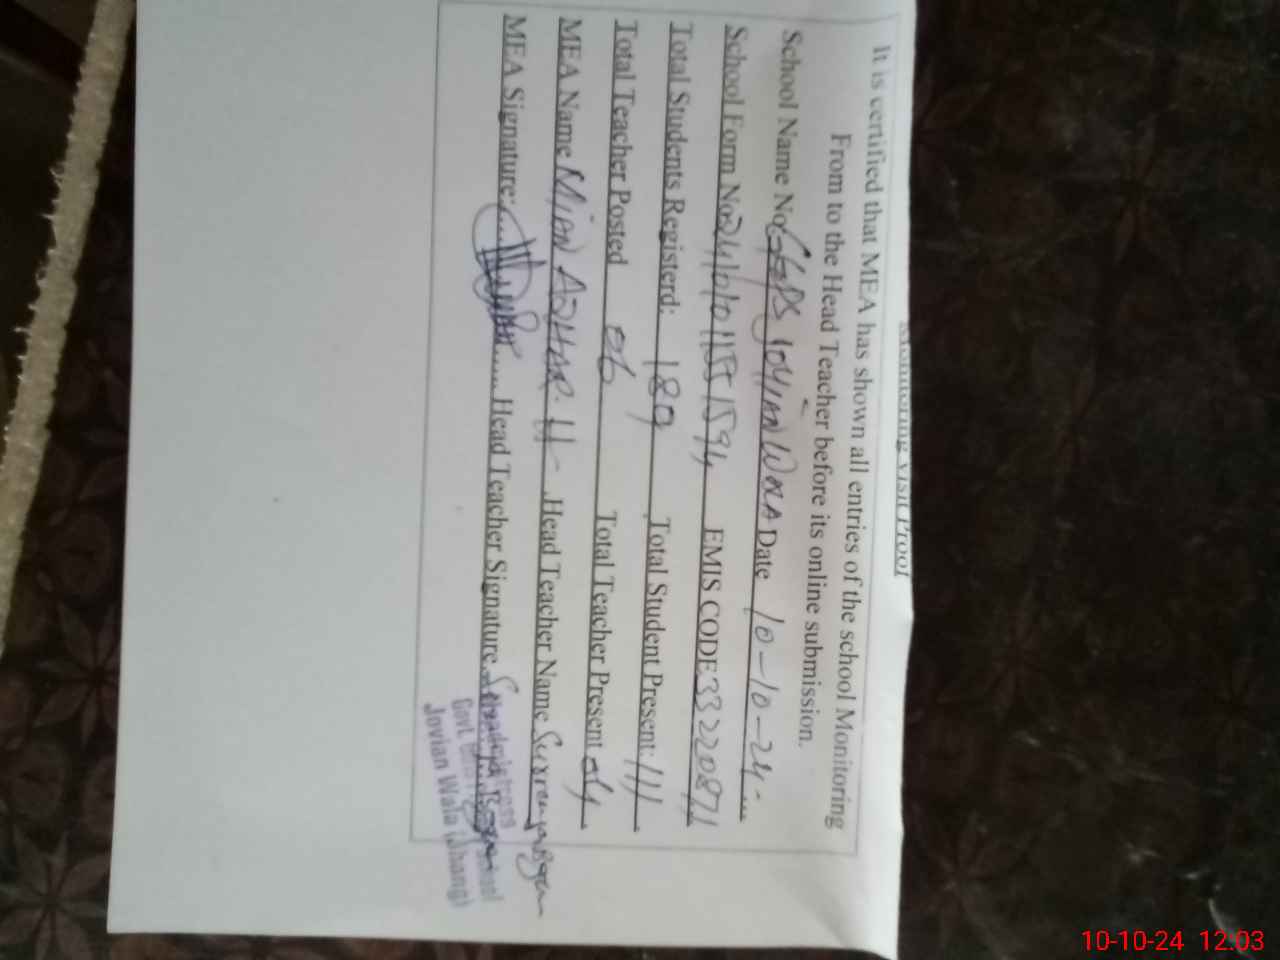 Monitoring Visit Proof
It is certified that MEA has shown all entries of the school Monitoring
From to the Head Teacher before its online submission.
School Name No GGPS JOYIAN WALA Date 10-10-24
School Form No. EMIS CODE 33220871
Total Students Registerd: 189 Total Student Present: 111
Total Teacher Posted 06 Total Teacher Present 04
MEA Name MIAN AZHAR. U Head Teacher Name
MEA Signature: Head Teacher Signature
Govt.
Jovian Wala (Jhang)
10-10-24 12:03